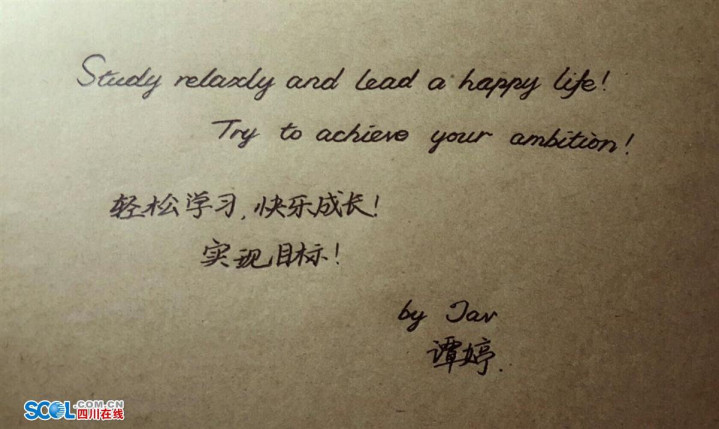 Study relaxly and lead a happy life!
Try to achieve your ambition!
轻松学习,快乐成长!
实现目标!
by Jav
谭婷.
SCOL.COM.CN
四川在线